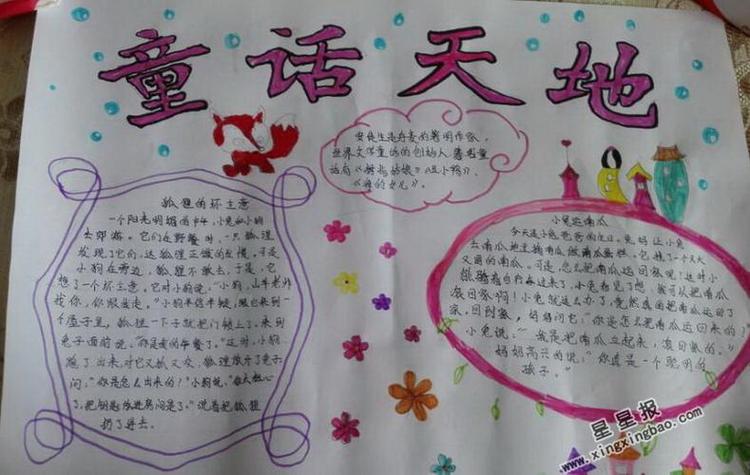 童话天地
安徒生是丹麦的著明作家,
世界文学童话的创始人,著名童
话有《拇指姑娘》《丑小鸭》、
《海的女儿》。
狐狸的坏主意
一个阳光明媚的中午,小兔和小狗
去郊游。它们在野餐时,一只狐狸
发现了它们,这狐狸正饿的发慌,可是
小狗在旁边,狐狸不敢去,于是,它
想了一个坏主意。它对小狗说:“小狗,山羊老师
找你,你跟我走。”小狗半信半疑,跟它来到一
个屋子里,狐狸一下子就把门锁上了,来到
兔子面前说:“你是我的午餐了。”这时,小狗
跑了出来,对它又抓又咬,狐狸放开了兔子
问:“你是怎么出来的!”小狗说:“你太粗心
了,把钥匙放进房间里了。”说着把狐狸
扔了再去。
小兔运南瓜
今天是小兔爸爸的生日。兔妈让小兔
去南瓜地里摘南瓜做南瓜蛋糕,它摘了一个又大
又圆的南瓜。可是,怎么把南瓜运回家呢?这时小
熊骑着自行车过来了,小兔看见了想:我可以把南瓜
滚回家啊!小兔就这么办了,竟然真的把南瓜运回了
家,回到家,妈妈问它:“你是怎么把南瓜运回来的
小兔说:“我是把南瓜立起来,滚回家的。”
妈妈高兴的说:“你真是一个聪明的
孩子。”
星星报
www.xingxingbao.com